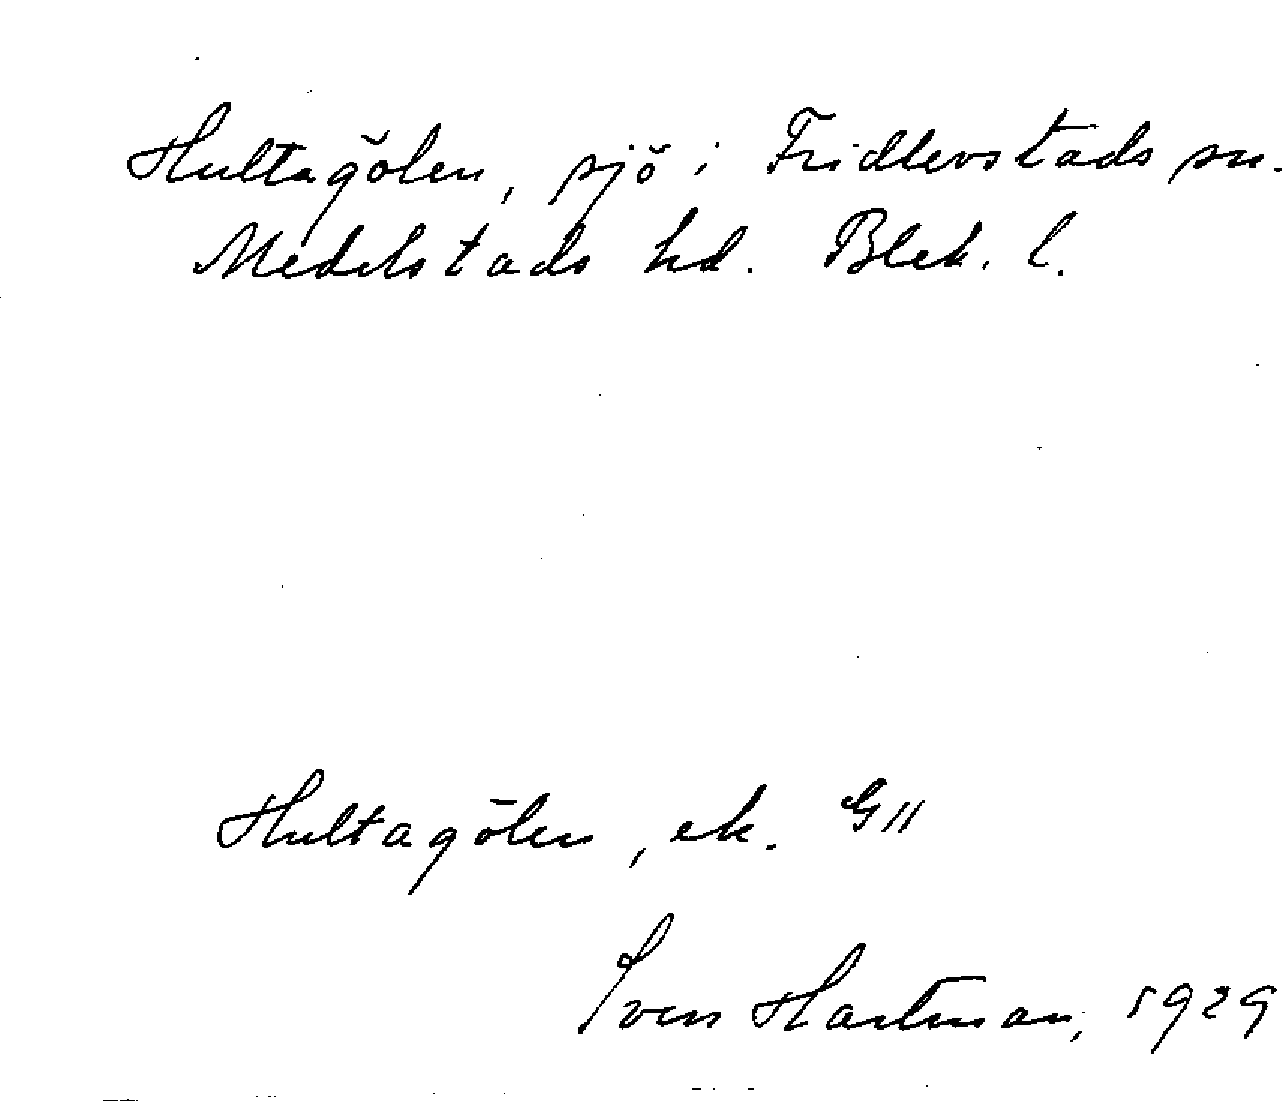 Hultagölen, sjö i Fridlevstads sn.
Medelstads hd. Blek. l.
Hultagölen, ek. G11
Sven Hartman, 1929